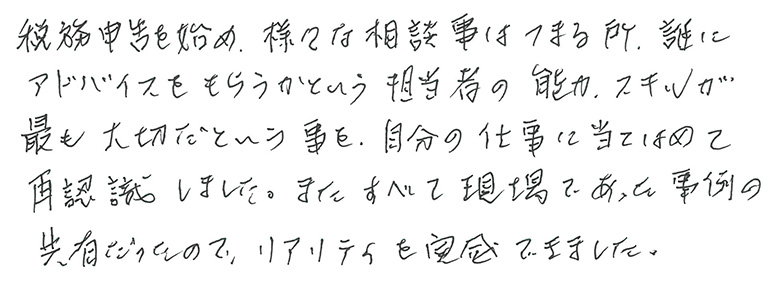 税務申告を始め、様々な相談事はつまる所、誰に
アドバイスをもらうかという担当者の能力、スキルが
最も大切だという事を、自分の仕事に当てはめて
再認識しました。またすべて現場であった事例の
共有だったので、リアリティを実感できました。